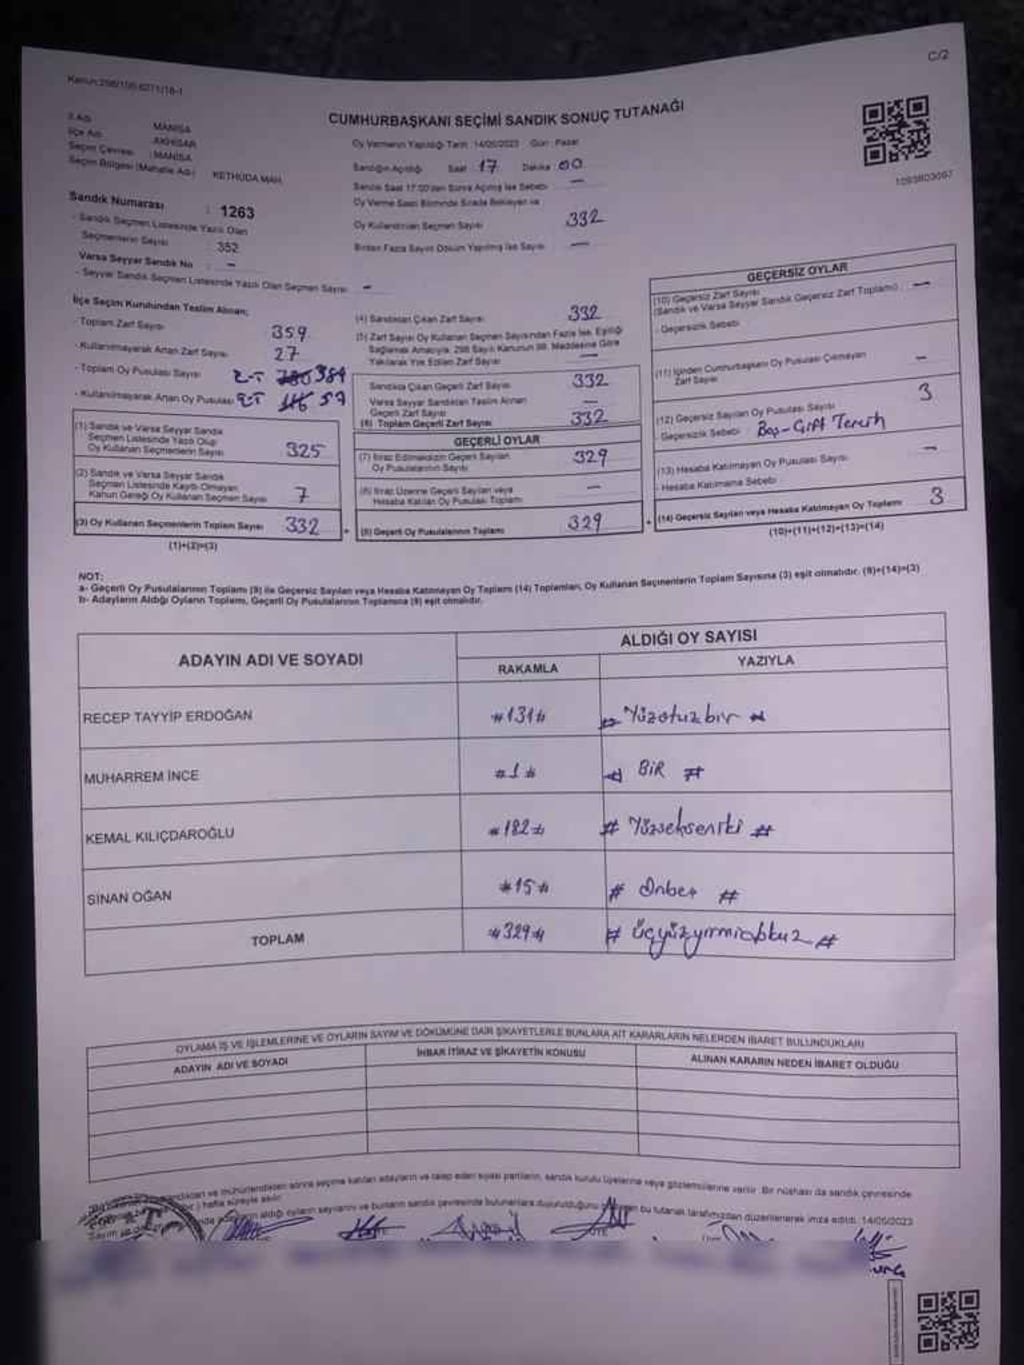 C/2
CUMHURBAŞKANI SEÇİMİ SANDIK SONUÇ TUTANAĞI
İl Adı : MANİSA
İlçe Adı : AKHİSAR
Seçim Çevresi : MANİSA
Seçim Bölgesi (Mahalle Adı) : KETHÜDA MAH.
Oy Vermenin Yapıldığı Tarih : 14/05/2023 Gün : Pazar
Sandığın Açıldığı Saat : 17 Dakika : 00
Sandık Saat 17:00'den Sonra Açılmış İse Sebebi —
Oy Verme Saati Bitiminde Sırada Bekleyen ve
Oy Kullandırılan Seçmen Sayısı 332
Birden Fazla Sayım Döküm Yapılmış İse Sayısı —
Sandık Numarası : 1263
- Sandık Seçmen Listesinde Yazılı Olan
Seçmenlerin Sayısı : 352
Varsa Seyyar Sandık No : –
- Seyyar Sandık Seçmen Listesinde Yazılı Olan Seçmen Sayısı –
İlçe Seçim Kurulundan Teslim Alınan;
- Toplam Zarf Sayısı 359
- Kullanılmayarak Artan Zarf Sayısı 27
- Toplam Oy Pusulası Sayısı 389
- Kullanılmayarak Artan Oy Pusulası 57
(1) Sandık ve Varsa Seyyar Sandık
Seçmen Listesinde Yazılı Olup
Oy Kullanan Seçmenlerin Sayısı 325
(2) Sandık ve Varsa Seyyar Sandık
Seçmen Listesinde Kayıtlı Olmayan
Kanun Gereği Oy Kullanan Seçmen Sayısı 7
(3) Oy Kullanan Seçmenlerin Toplam Sayısı 332
(1)+(2)=(3)
(4) Sandıktan Çıkan Zarf Sayısı 332
(5) Zarf Sayısı Oy Kullanan Seçmen Sayısından Fazla İse, Eşitliği
Sağlamak Amacıyla, 298 Sayılı Kanunun 98. Maddesine Göre
Yakılarak Yok Edilen Zarf Sayısı —
Sandıkta Çıkan Geçerli Zarf Sayısı 332
Varsa Seyyar Sandıktan Teslim Alınan
Geçerli Zarf Sayısı —
(6) Toplam Geçerli Zarf Sayısı 332
GEÇERLİ OYLAR
(7) İtiraz Edilmeksizin Geçerli Sayılan
Oy Pusulalarının Sayısı 329
(8) İtiraz Üzerine Geçerli Sayılan veya
Hesaba Katılan Oy Pusulası Toplamı —
(9) Geçerli Oy Pusulalarının Toplamı 329
GEÇERSİZ OYLAR
(10) Geçersiz Zarf Sayısı
(Sandık ve Varsa Seyyar Sandık Geçersiz Zarf Toplamı) —
- Geçersizlik Sebebi
(11) İçinden Cumhurbaşkanı Oy Pusulası Çıkmayan
Zarf Sayısı –
(12) Geçersiz Sayılan Oy Pusulası Sayısı 3
- Geçersizlik Sebebi : Boş-Çift Tercih
(13) Hesaba Katılmayan Oy Pusulası Sayısı –
- Hesaba Katılmama Sebebi
(14) Geçersiz Sayılan veya Hesaba Katılmayan Oy Toplamı 3
(10)+(11)+(12)+(13)=(14)
NOT:
a- Geçerli Oy Pusulalarının Toplamı (9) ile Geçersiz Sayılan veya Hesaba Katılmayan Oy Toplamı (14) Toplamları, Oy Kullanan Seçmenlerin Toplam Sayısına (3) eşit olmalıdır. (9)+(14)=(3)
b- Adayların Aldığı Oyların Toplamı, Geçerli Oy Pusulalarının Toplamına (9) eşit olmalıdır.
ADAYIN ADI VE SOYADI ALDIĞI OY SAYISI
RAKAMLA YAZIYLA
RECEP TAYYİP ERDOĞAN #131# # Yüzotuzbir #
MUHARREM İNCE #1# # BİR #
KEMAL KILIÇDAROĞLU #182# # Yüzsekseniki #
SİNAN OĞAN #15# # Onbeş #
TOPLAM #329# # Üçyüzyirmidokuz #
OYLAMA İŞ VE İŞLEMLERİNE VE OYLARIN SAYIM VE DÖKÜMÜNE DAİR ŞİKAYETLERLE BUNLARA AİT KARARLARIN NELERDEN İBARET BULUNDUKLARI
ADAYIN ADI VE SOYADI İHBAR İTİRAZ VE ŞİKAYETİN KONUSU ALINAN KARARIN NEDEN İBARET OLDUĞU
mühürlendikten sonra seçime katılan adayların ve talep eden siyasi partilerin, sandık kurulu üyelerine veya gözlemcilerine verilir. Bir nüshası da sandık çevresinde
hafta süreyle asılır.
aldığı oyların sayılarını ve bunların sandık çevresinde bulunanlara duyurulduğunu bu tutanak tarafımızdan düzenlenerek imza edildi. 14/05/2023